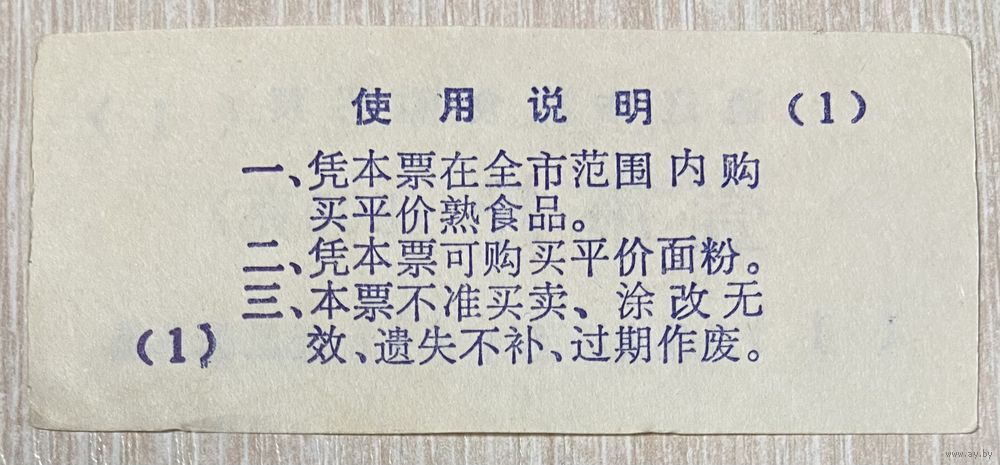 使用说明 (1)
一、凭本票在全市范围内购
买平价熟食品。
二、凭本票可购买平价面粉。
三、本票不准买卖、涂改无
(1) 效、遗失不补、过期作废。
www.ay.by